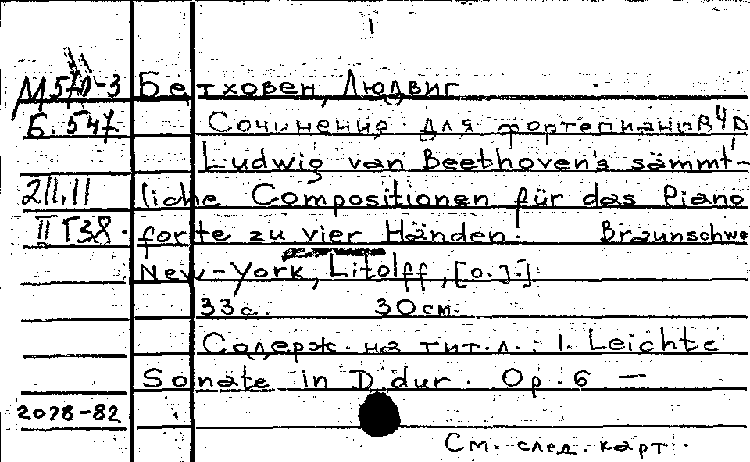 1
М570-3 Бетховен, Людвиг
Б. 547 Сочинения для фортепиано в 4 р
Ludwig van Beethoven's sämmt-
2II.II liche Compositionen für das Piano
II Т38. forte zu vier Händen. Braunschwe
New-York, Litolff, [o. J.]
33 с. 30 см.
Содерж. на тит. л.: 1. Leichte
Sonate in D dur. Op. 6 —
2078-82
См. след. карт.